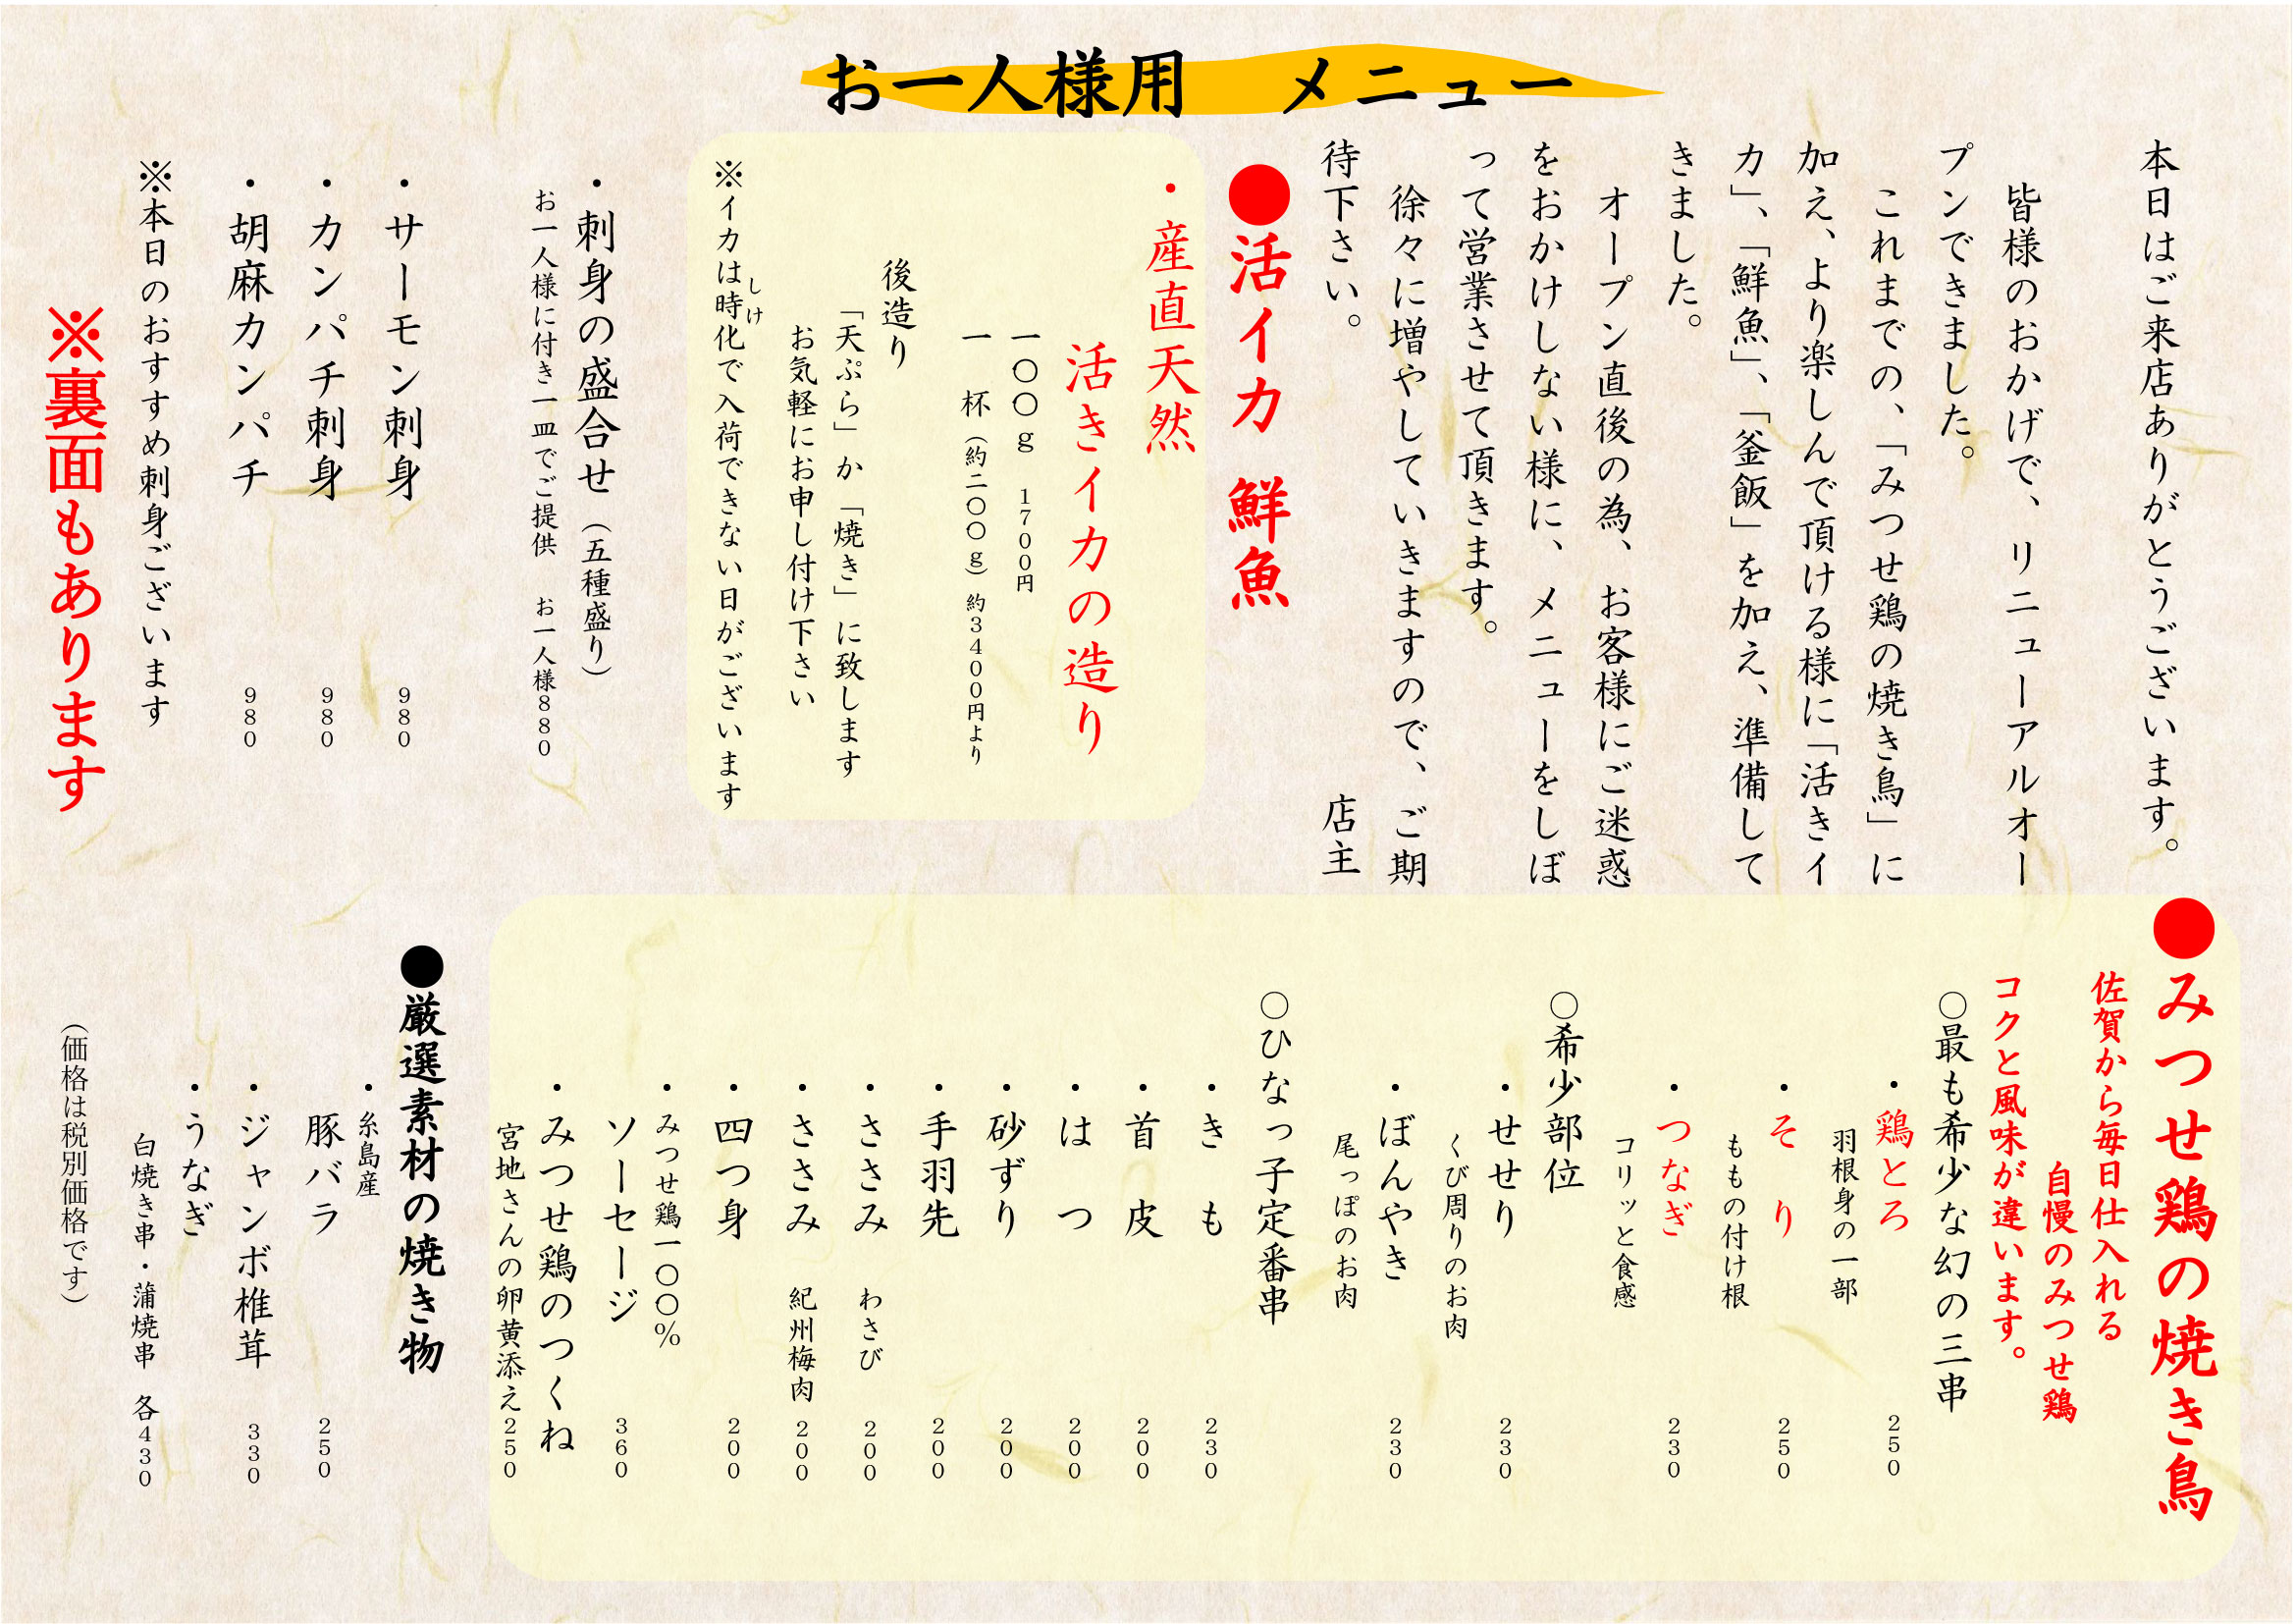 お一人様用　メニュー
本日はご来店ありがとうございます。
皆様のおかげで、リニューアルオー
プンできました。
これまでの、「みつせ鶏の焼き鳥」に
加え、より楽しんで頂ける様に「活きイ
カ」、「鮮魚」、「釜飯」を加え、準備して
きました。
オープン直後の為、お客様にご迷惑
をおかけしない様に、メニューをしぼ
って営業させて頂きます。
徐々に増やしていきますので、ご期
待下さい。　店主
●活イカ　鮮魚
・産直天然
活きイカの造り
一〇〇g　1700円
一　杯（約二〇〇g）約3400円より
後造り
「天ぷら」か「焼き」に致します
お気軽にお申し付け下さい
しけ
※イカは時化で入荷できない日がございます
・刺身の盛合せ（五種盛り）
お一人様に付き一皿でご提供　お一人様880
・サーモン刺身　980
・カンパチ刺身　980
・胡麻カンパチ　980
※本日のおすすめ刺身ございます
※裏面もあります
●みつせ鶏の焼き鳥
佐賀から毎日仕入れる
自慢のみつせ鶏
コクと風味が違います。
○最も希少な幻の三串
・鶏とろ　250
羽根身の一部
・そ　り　250
ももの付け根
・つなぎ　230
コリッと食感
○希少部位
・せせり　230
くび周りのお肉
・ぼんやき　230
尾っぽのお肉
○ひなっ子定番串
・き　も　230
・首　皮　200
・は　つ　200
・砂ずり　200
・手羽先　200
・ささみ　わさび　200
・ささみ　紀州梅肉　200
・四つ身　200
・みつせ鶏一〇〇%
ソーセージ　360
・みつせ鶏のつくね
宮地さんの卵黄添え250
●厳選素材の焼き物
・糸島産
豚バラ　250
・ジャンボ椎茸　330
・うなぎ
白焼き串・蒲焼串　各430
（価格は税別価格です）